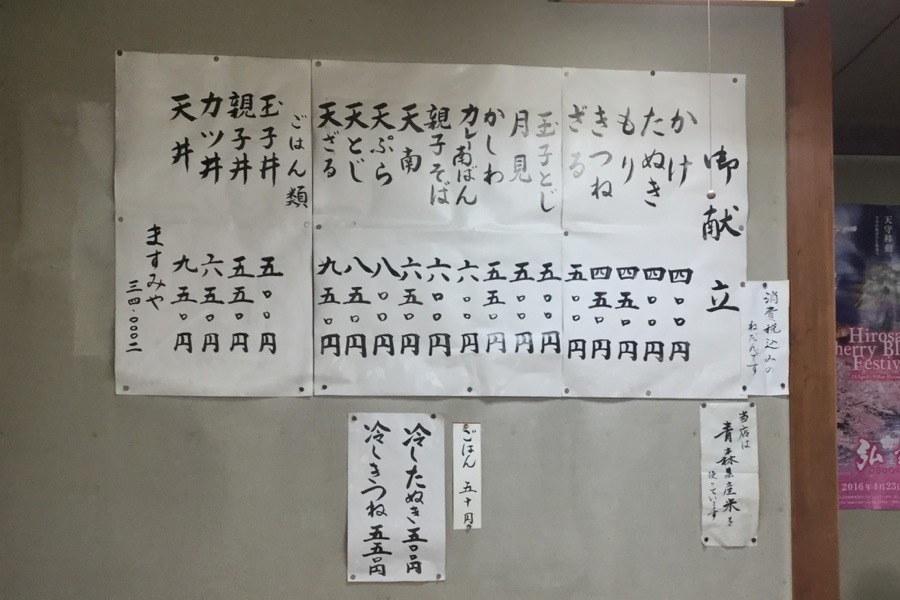 御献立
かけ 四〇〇円
たぬき 四〇〇円
もり 四五〇円
きつね 四五〇円
ざる 五〇〇円
玉子とじ 五〇〇円
月見 五〇〇円
かしわ 五五〇円
カレー南ばん 六〇〇円
親子そば 六〇〇円
天南 六五〇円
天ぷら 八〇〇円
天とじ 八五〇円
天ざる 九五〇円
ごはん類
玉子丼 五〇〇円
親子丼 五五〇円
カツ丼 六五〇円
天丼 九五〇円
ますみや
三四・〇〇〇二
消費税込みの
ねだんです
当店は
青森県産米を
使っています
ごはん 五十円
冷したぬき 五〇〇円
冷しきつね 五五〇円
天守移動
Hirosa
herry Bl
Festiv
弘
2016年4月23日